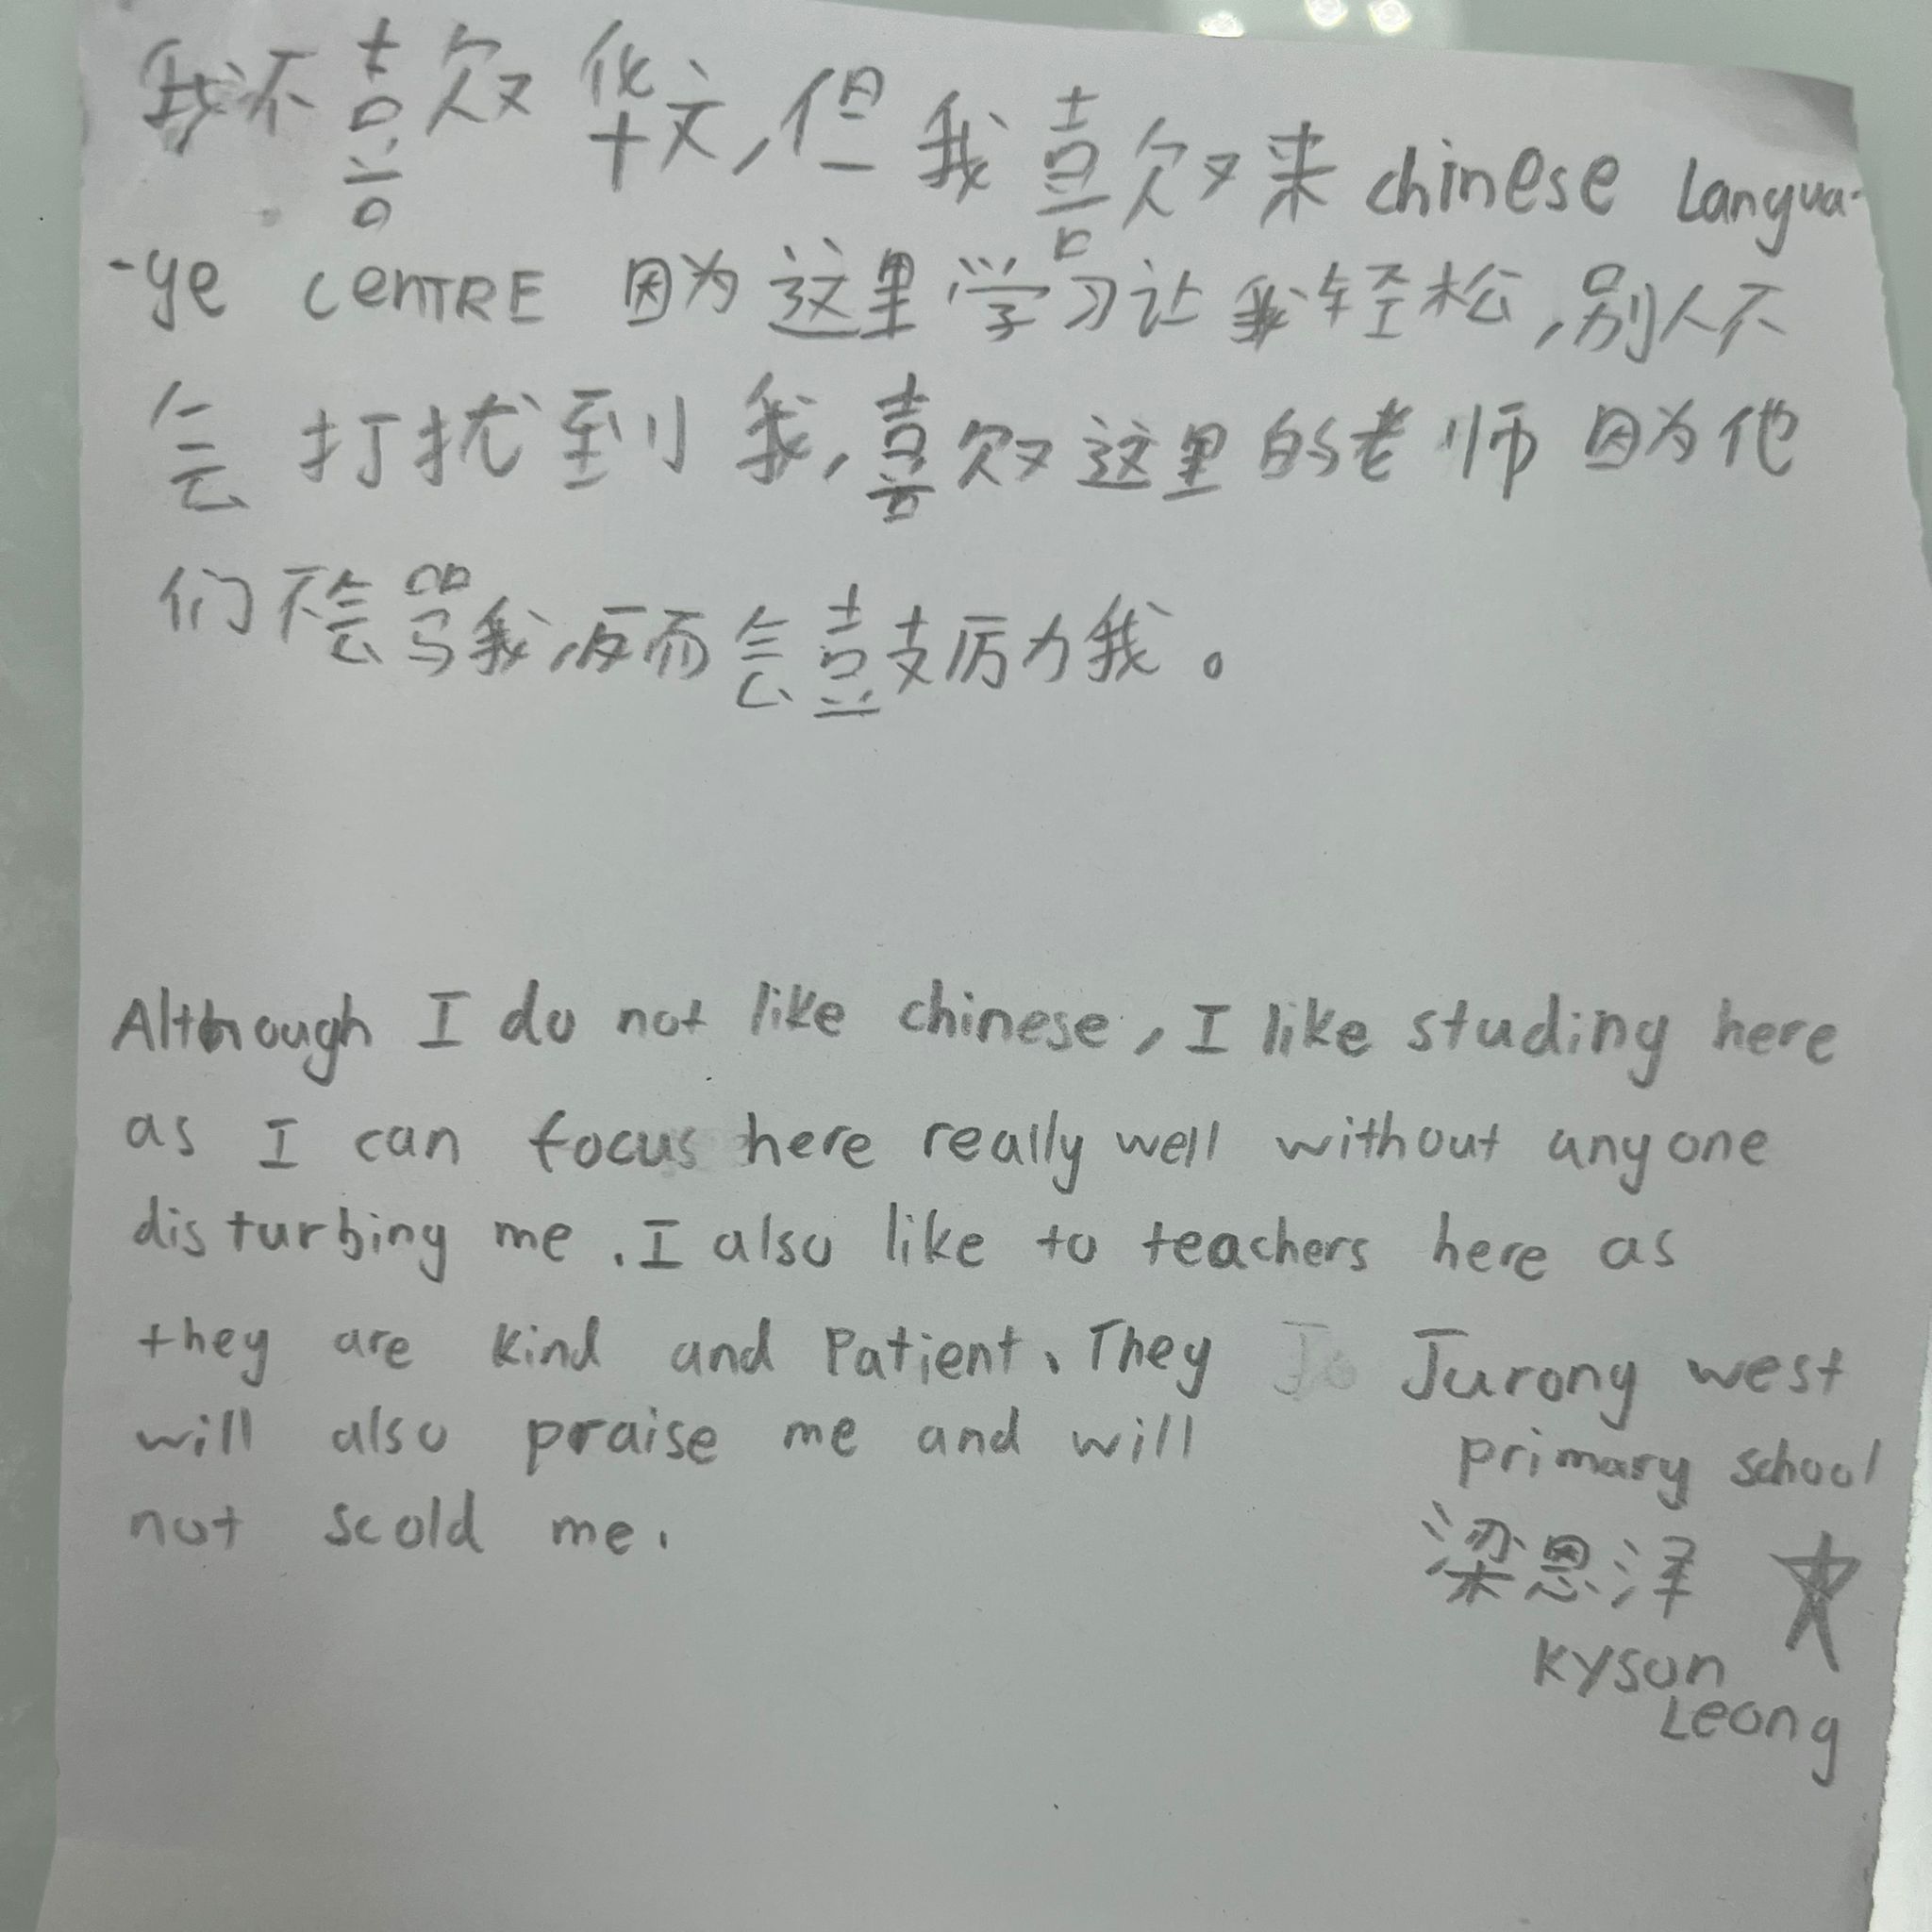 我不喜欢华文，但我喜欢来 chinese Langua-
-ge CENTRE 因为这里学习让我轻松，别人不
会打扰到我，喜欢这里的老师因为他
们不会骂我，反而会鼓励我。
Although I do not like chinese, I like studing here
as I can focus here really well without anyone
disturbing me. I also like to teachers here as
they are kind and Patient. They
will also praise me and will
not scold me.
Jurong west
primary school
梁恩泽
kyson
Leong